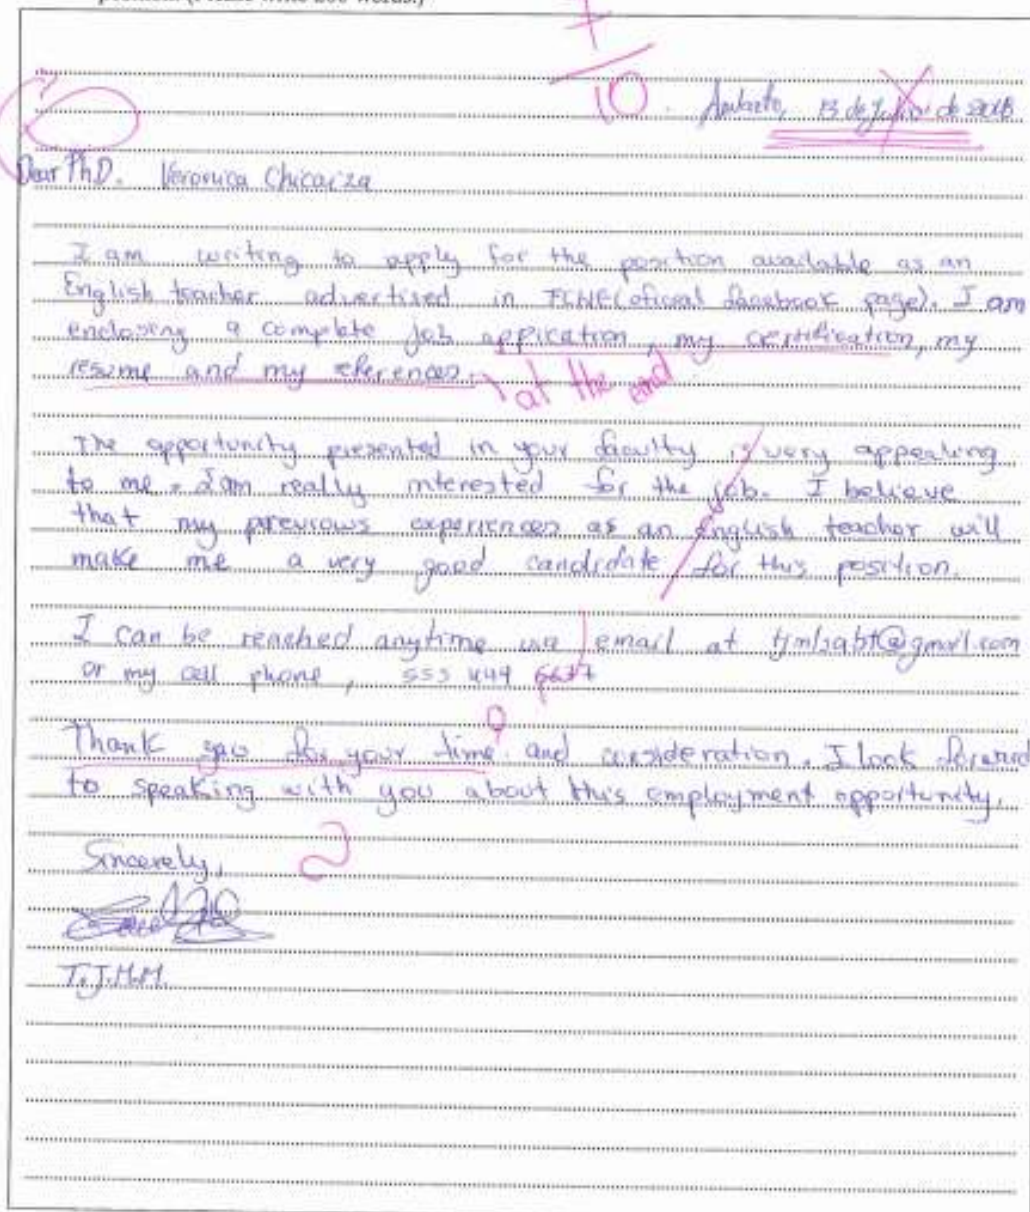 7
10
Ambato, 13 de Julio de 2018
Dear PhD. Veronica Chicaiza
I am writing to apply for the position available as an
English teacher advertised in FCHE(oficial facebook page). I am
enclosing a complete job appication, my certification, my
resume and my references.
at the end
The opportunity presented in your faculty is very appealing
to me. I am really interested for the job. I believe
that my previows experiences as an English teacher will
make me a very good candidate for this position.
I can be reached anytime via email at
or my cell phone, 555 444 6677
Thank you for your time and consideration. I look forward
to speaking with you about this employment opportunity.
Sincerely,
T.J.M.M.